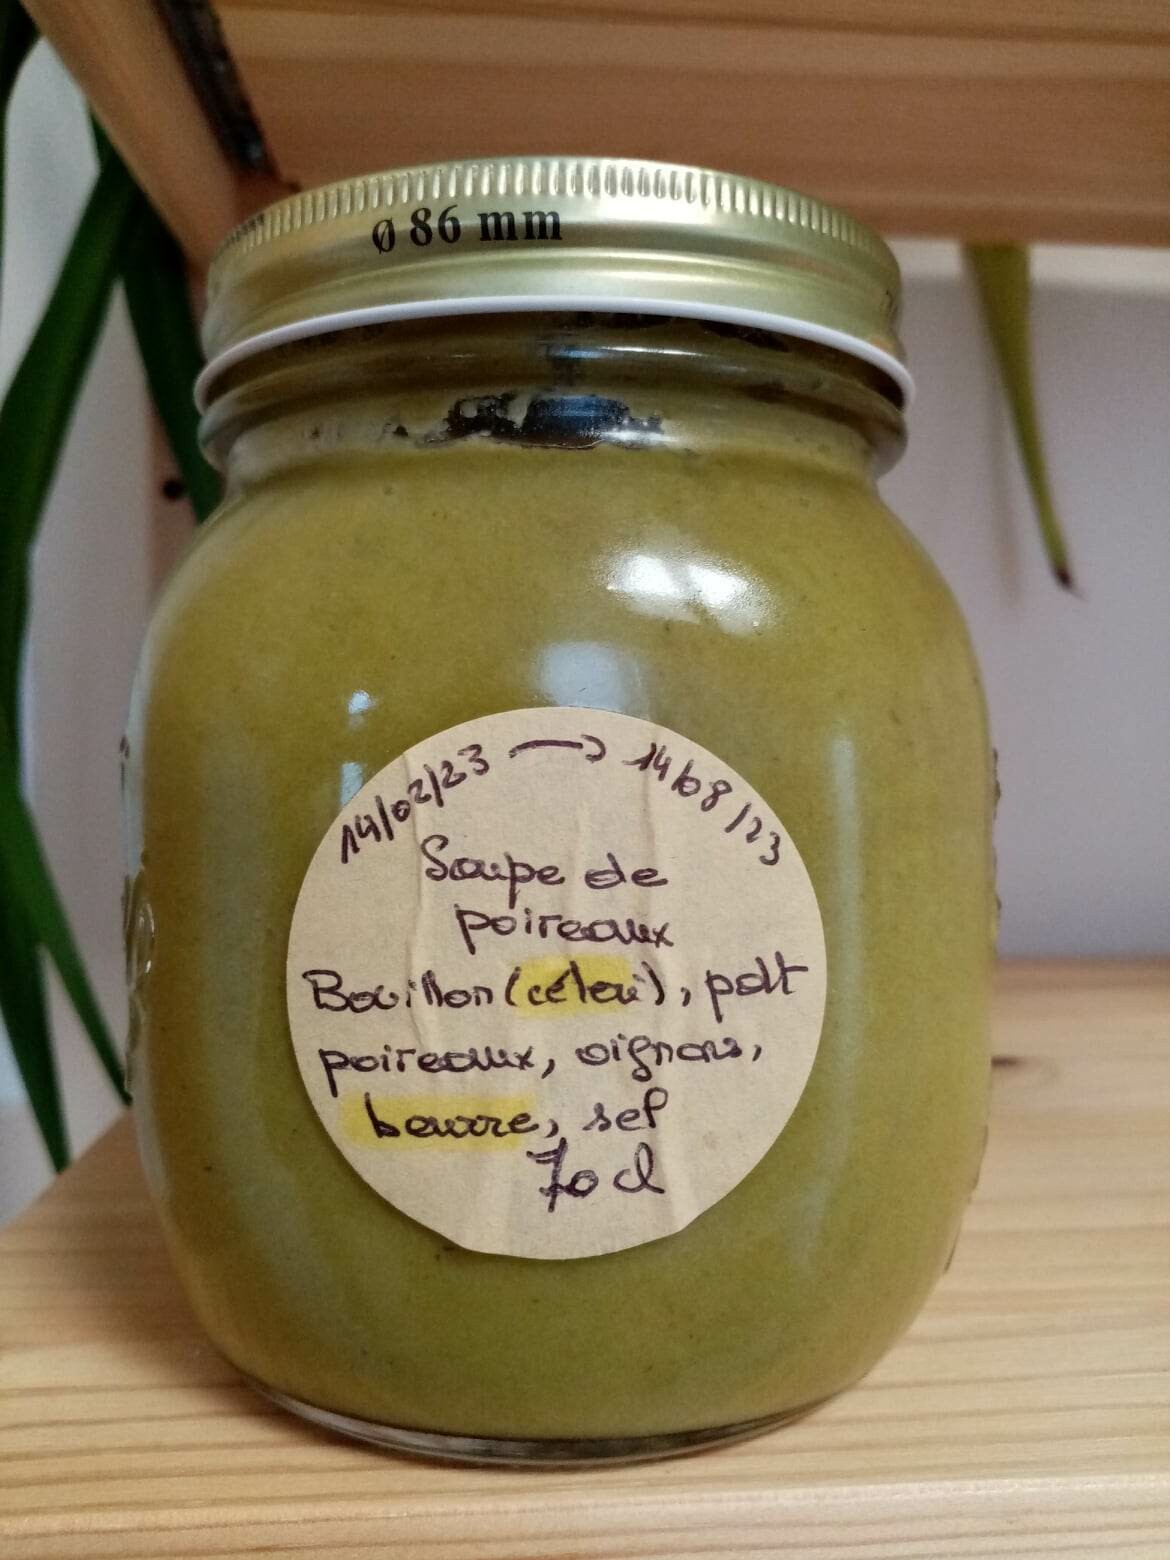 Ø 86 mm
14/02/23 → 14/08/23
Soupe de
poireaux
Bouillon (céleri), pdt
poireaux, oignons,
beurre, sel
70 cl